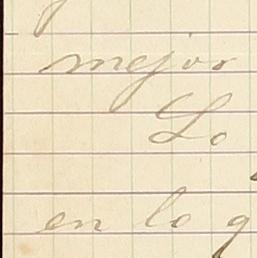 mejor
Lo
en lo q